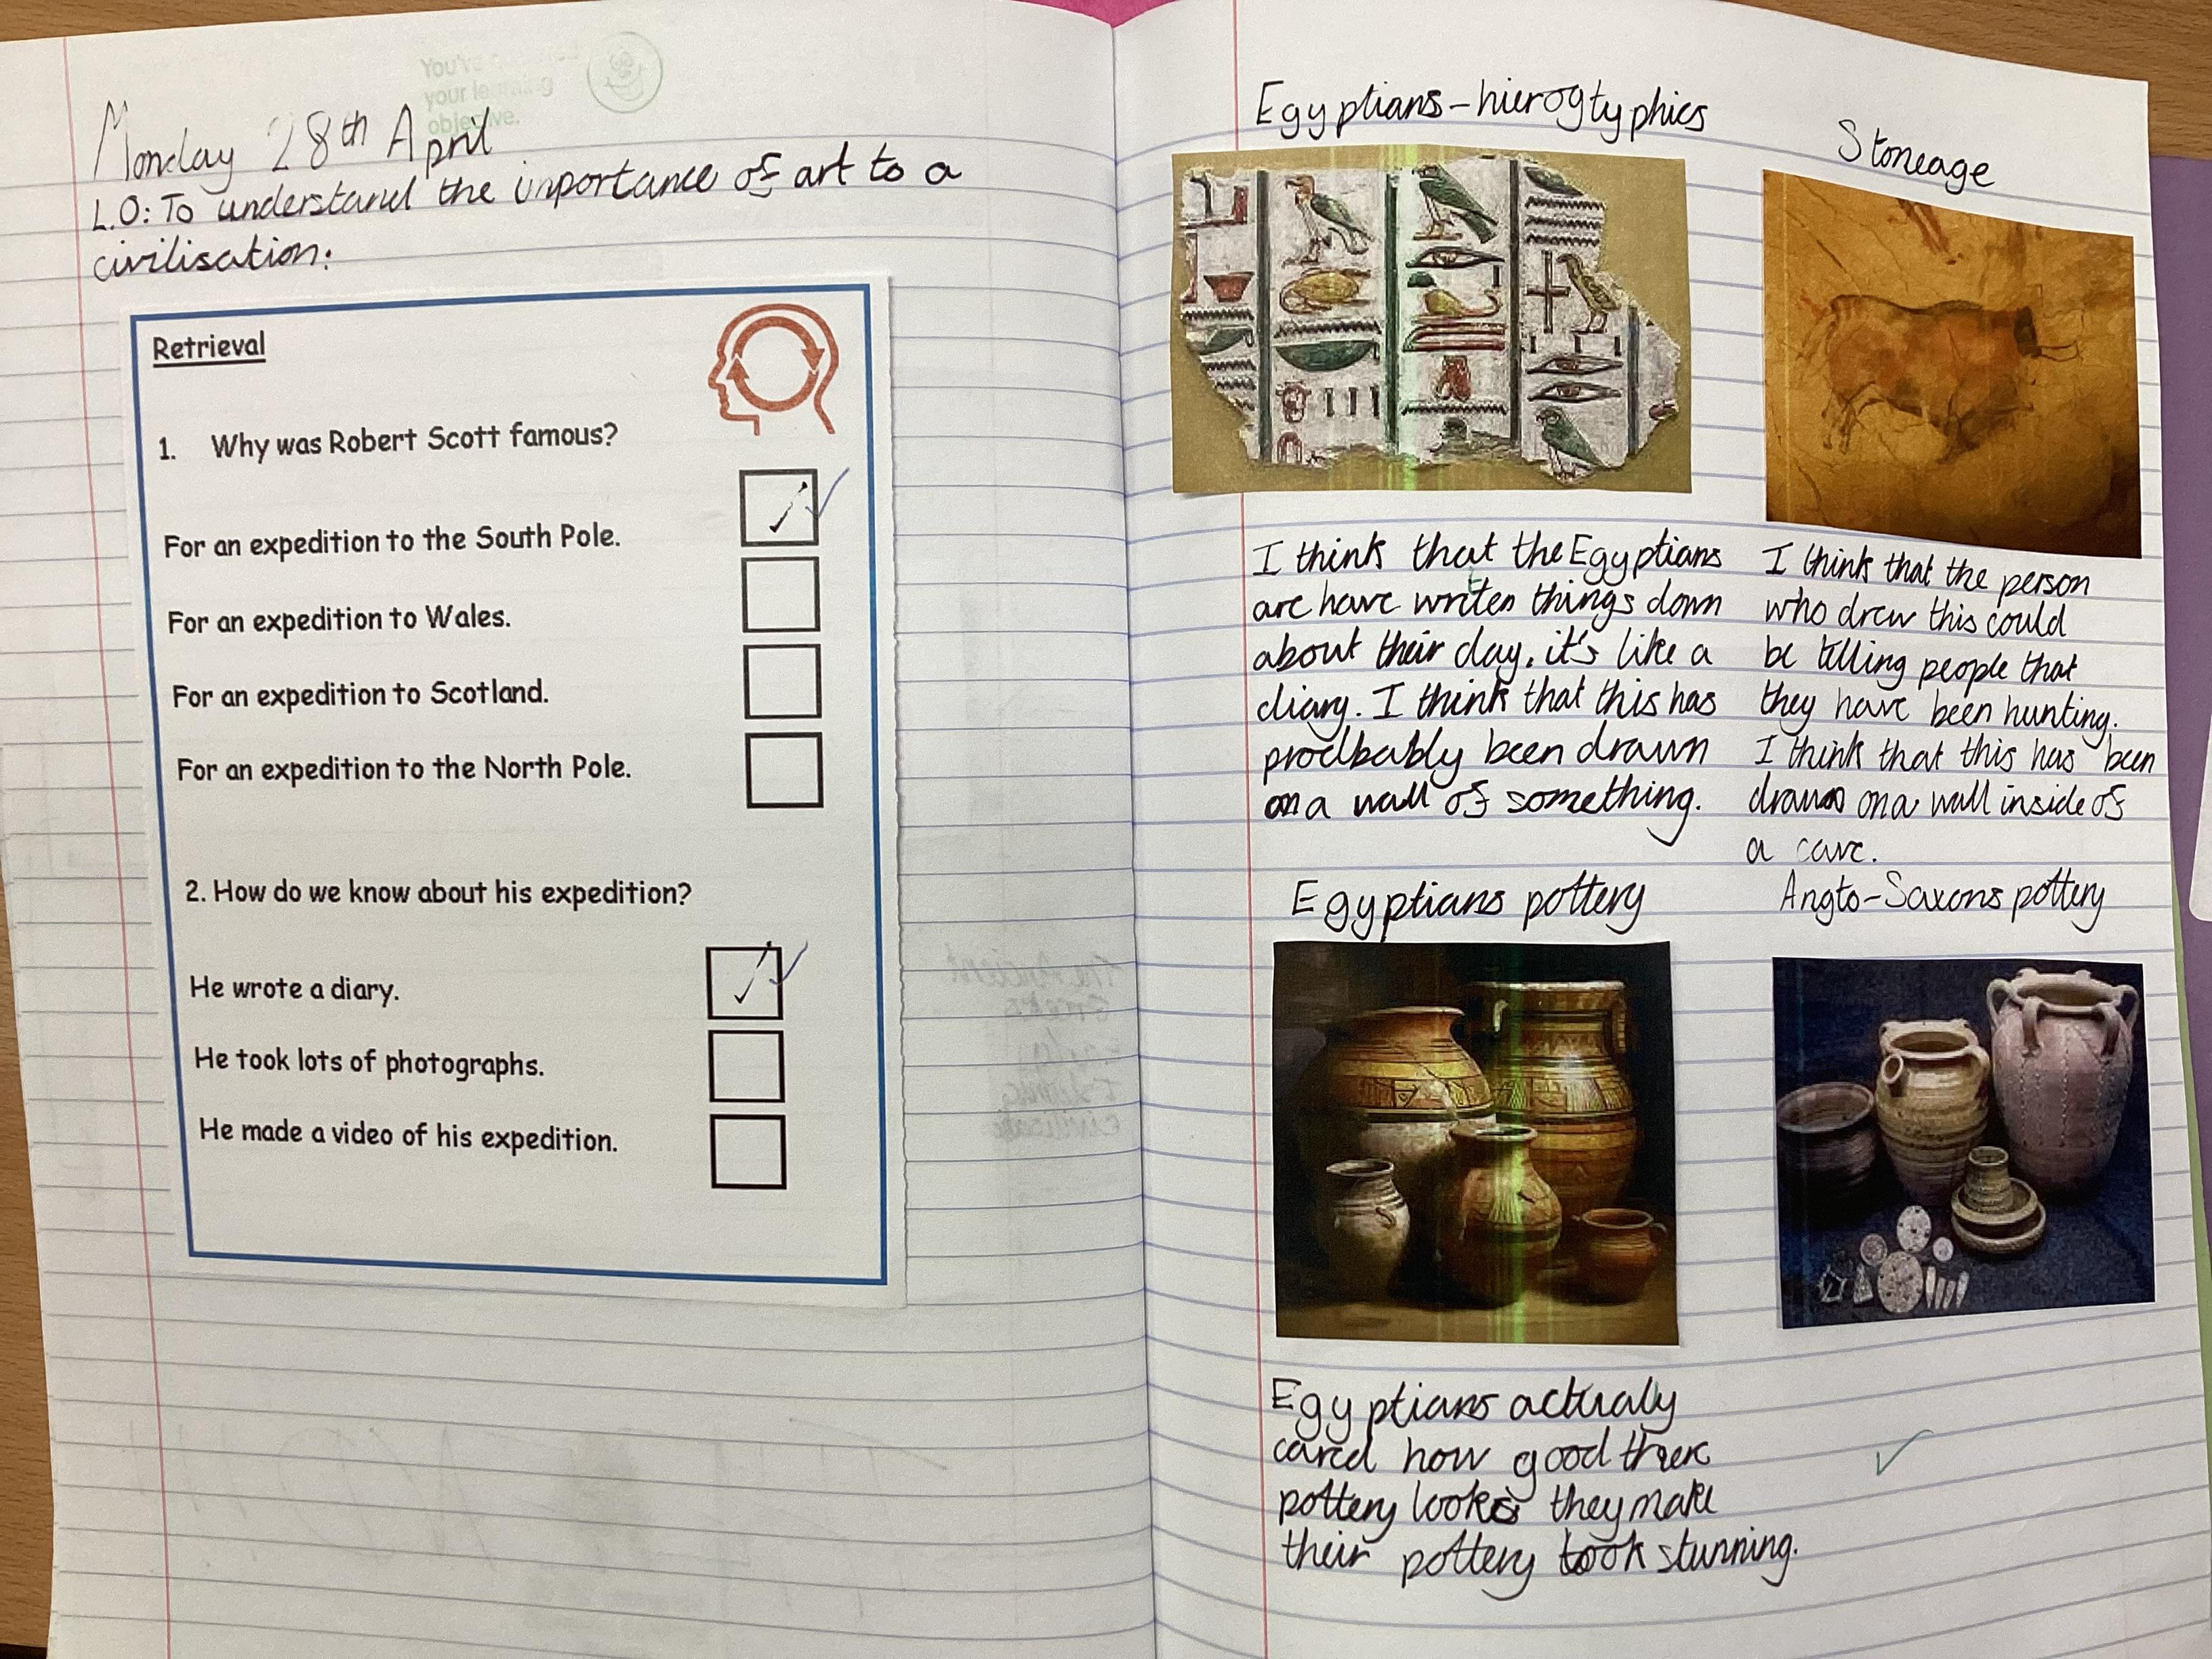 You've
your learning
objective.
Monday 28th April
L.O: To understand the importance of art to a
civilisation.
Retrieval
1. Why was Robert Scott famous?
For an expedition to the South Pole.
For an expedition to Wales.
For an expedition to Scotland.
For an expedition to the North Pole.
2. How do we know about his expedition?
He wrote a diary.
He took lots of photographs.
He made a video of his expedition.
Egyptians-hierogtyphics
I think that the Egyptians
are have writen things down
about their day, it's like a
diary. I think that this has
prodbably been drawn
on a wall of something.
Stoneage
I think that the person
who drew this could
be telling people that
they have been hunting.
I think that this has been
drawn on a wall inside of
a cave.
Egyptians pottery
Egyptians actualy
cared how good
pottery looks they make
their pottery look stunning.
Angto-Saxons pottery